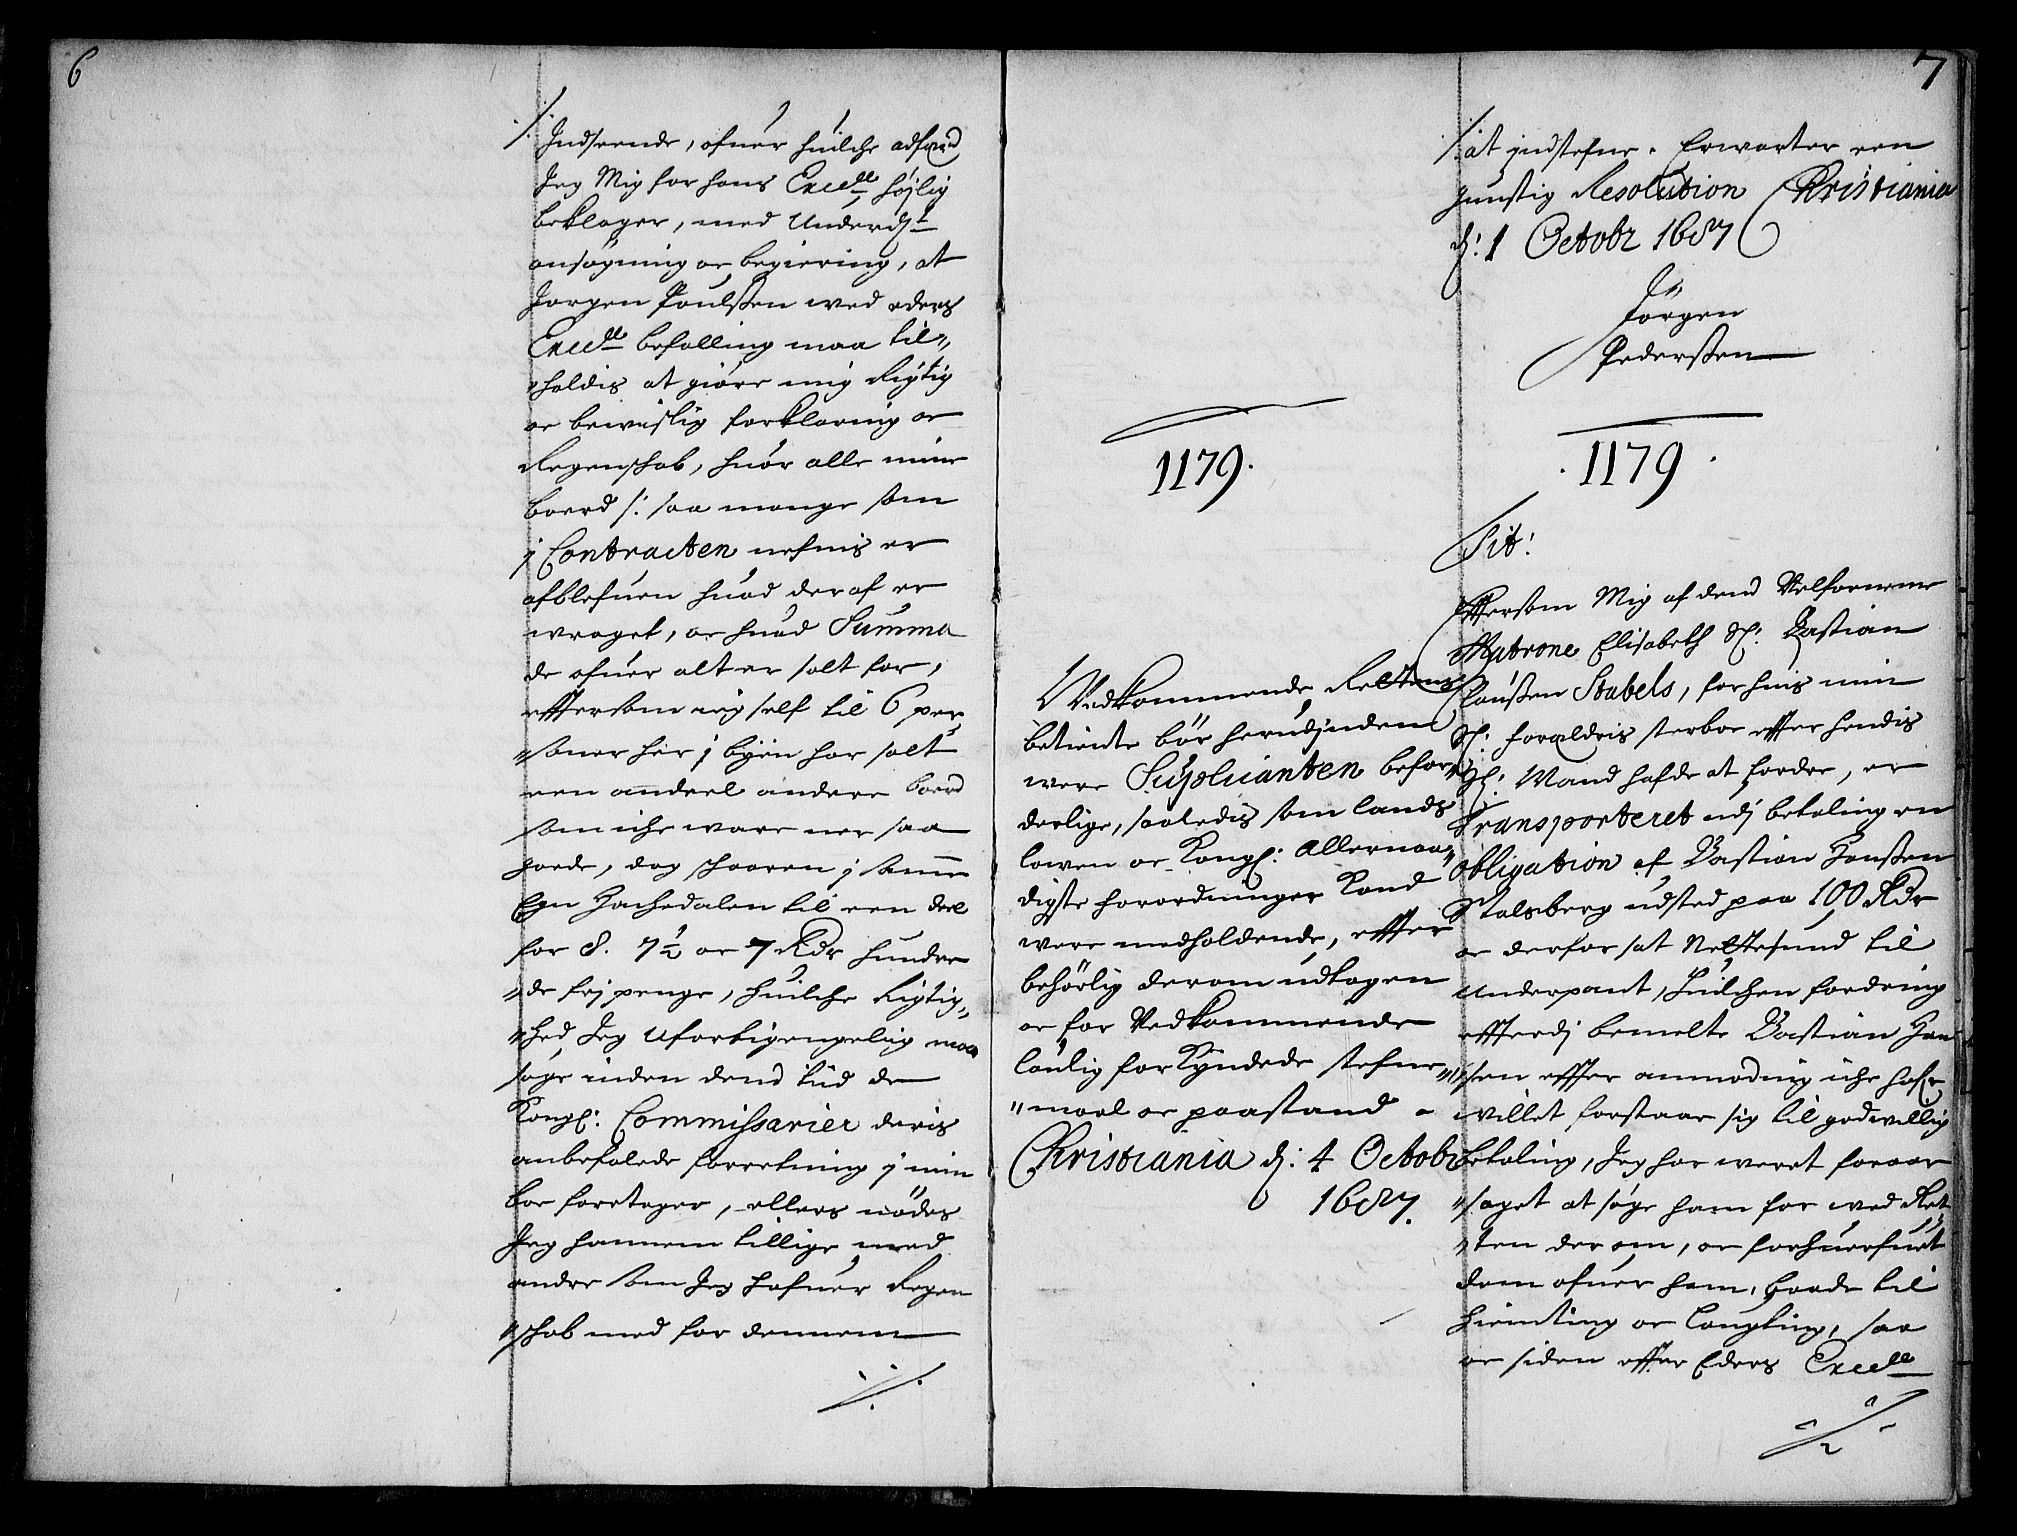 6
./. Indseende, ofuer huilche adferd
Jeg Mig for hans Excell: höjlig
beklager, med Underd:t
ansögning oc begiering, at
Jorgen Poulssen med eders
Excell: befalling maa til„
„holdis at giöre mig Rigtig
oc bewislig forklaring oc
Regenschab, huor alle mine
boerd /: saa mange som
j Contracten nefnis er
afblefuen huad der af er
wraget, oc huad Summa
de ofuer alt er solt for,
efftersom ieg self til 6 per
„soner her j byen har solt
een andeel andere boerd
som iche ware ner saa
goede, dog schaaren j samme
Egn Hachedalen til een deel
for 8. 7½ oc 7 Rdr hundre
„de frj penge, huilche Rigtig„
„hed Jeg uforbigengelig maa
söge inden dend tiid de
Kongl: Commissarier deris
anbefalede forretning j min
boe foretager, ellers nödes
Jeg hannem tillige med
andre som Jeg hafuer Regen
„schab med for dennem
./.
1179.
Vedkommende Rettens
betiente bör herudjnden
were Suplicanten befor„
derlige, saaledis som lands
lowen oc Kongl: Allernaa„
digste forordninger Kand
were medholdende, effter
behörlig derom udtagen
oc for Vedkommende
loulig forkyndede stefne„
„maal oc paastand -
Christiania d: 4 Octobr
1687.
7
./. at jndstefne. Erwarter een
gunstig Resolution Christiania
d: 1 Octobr 1687
Jörgen
Pederssen
1179.
Tit:
Efftersom Mig af dend Velfornemme
Matrone Elisabeth Sl: Bastian
Clausen Stabels, for huis min
Sl: foreldris sterboe effter hendis
Sl: Mand hafde at fordre, er
transporteret udj betaling en
obligation af Bastian Hanssen
Stalsberg udsted paa 100 Rdr
oc derfor sat Neltesund til
Underpant, huilchen fordring
effterdj bemelte Bastian Han
„sen effter anmoding iche hafr
willet forstaae sig til godwillig
betaling, Jeg har weret foraar
„saget at söge ham for wed Ret„
„ten der om, oc forhuerfuet
dom ofuer ham, baade til
hiemting oc laugting, saa
oc siden effter Eders Excell:
./.